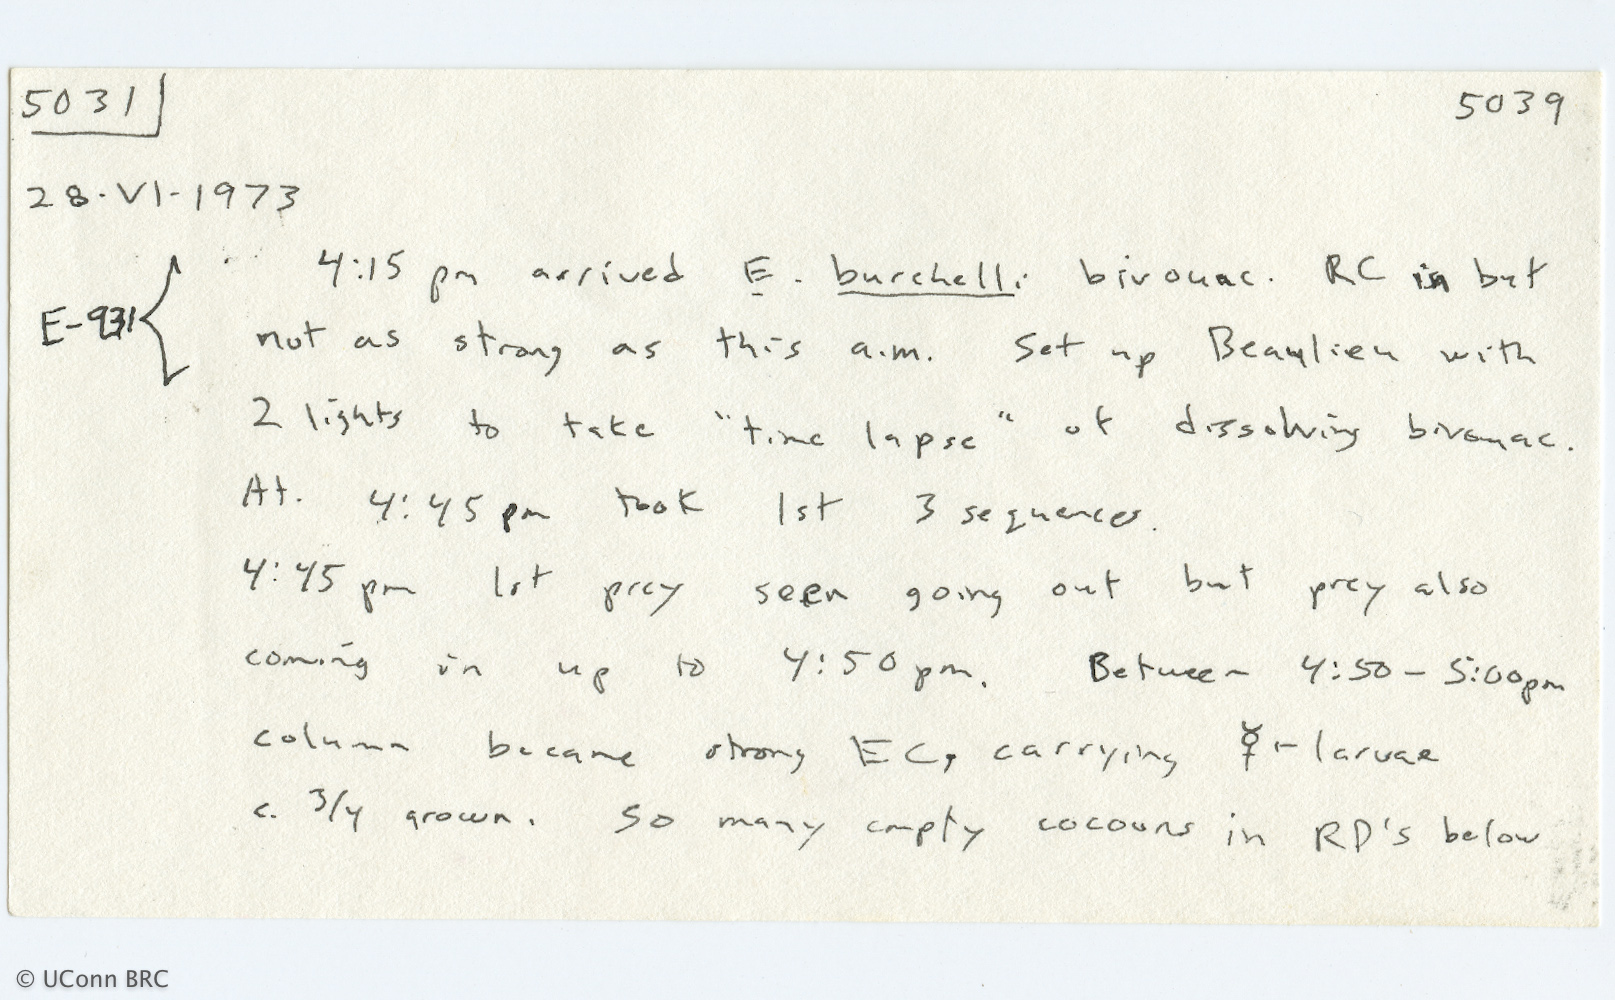 5031 5039
28-VI-1973
4:15 pm arrived E. burchelli bivouac. RC in but
E-931
not as strong as this a.m. Set up Beaulieu with
2 lights to take "time lapse" of dissolving bivouac.
At. 4:45 pm took 1st 3 sequences.
4:45 pm 1st prey seen going out but prey also
coming in up to 4:50 pm. Between 4:50 - 5:00pm
column became strong EC, carrying ☿-larvae
c. 3/4 grown. So many empty cocoons in RD's below
© UConn BRC